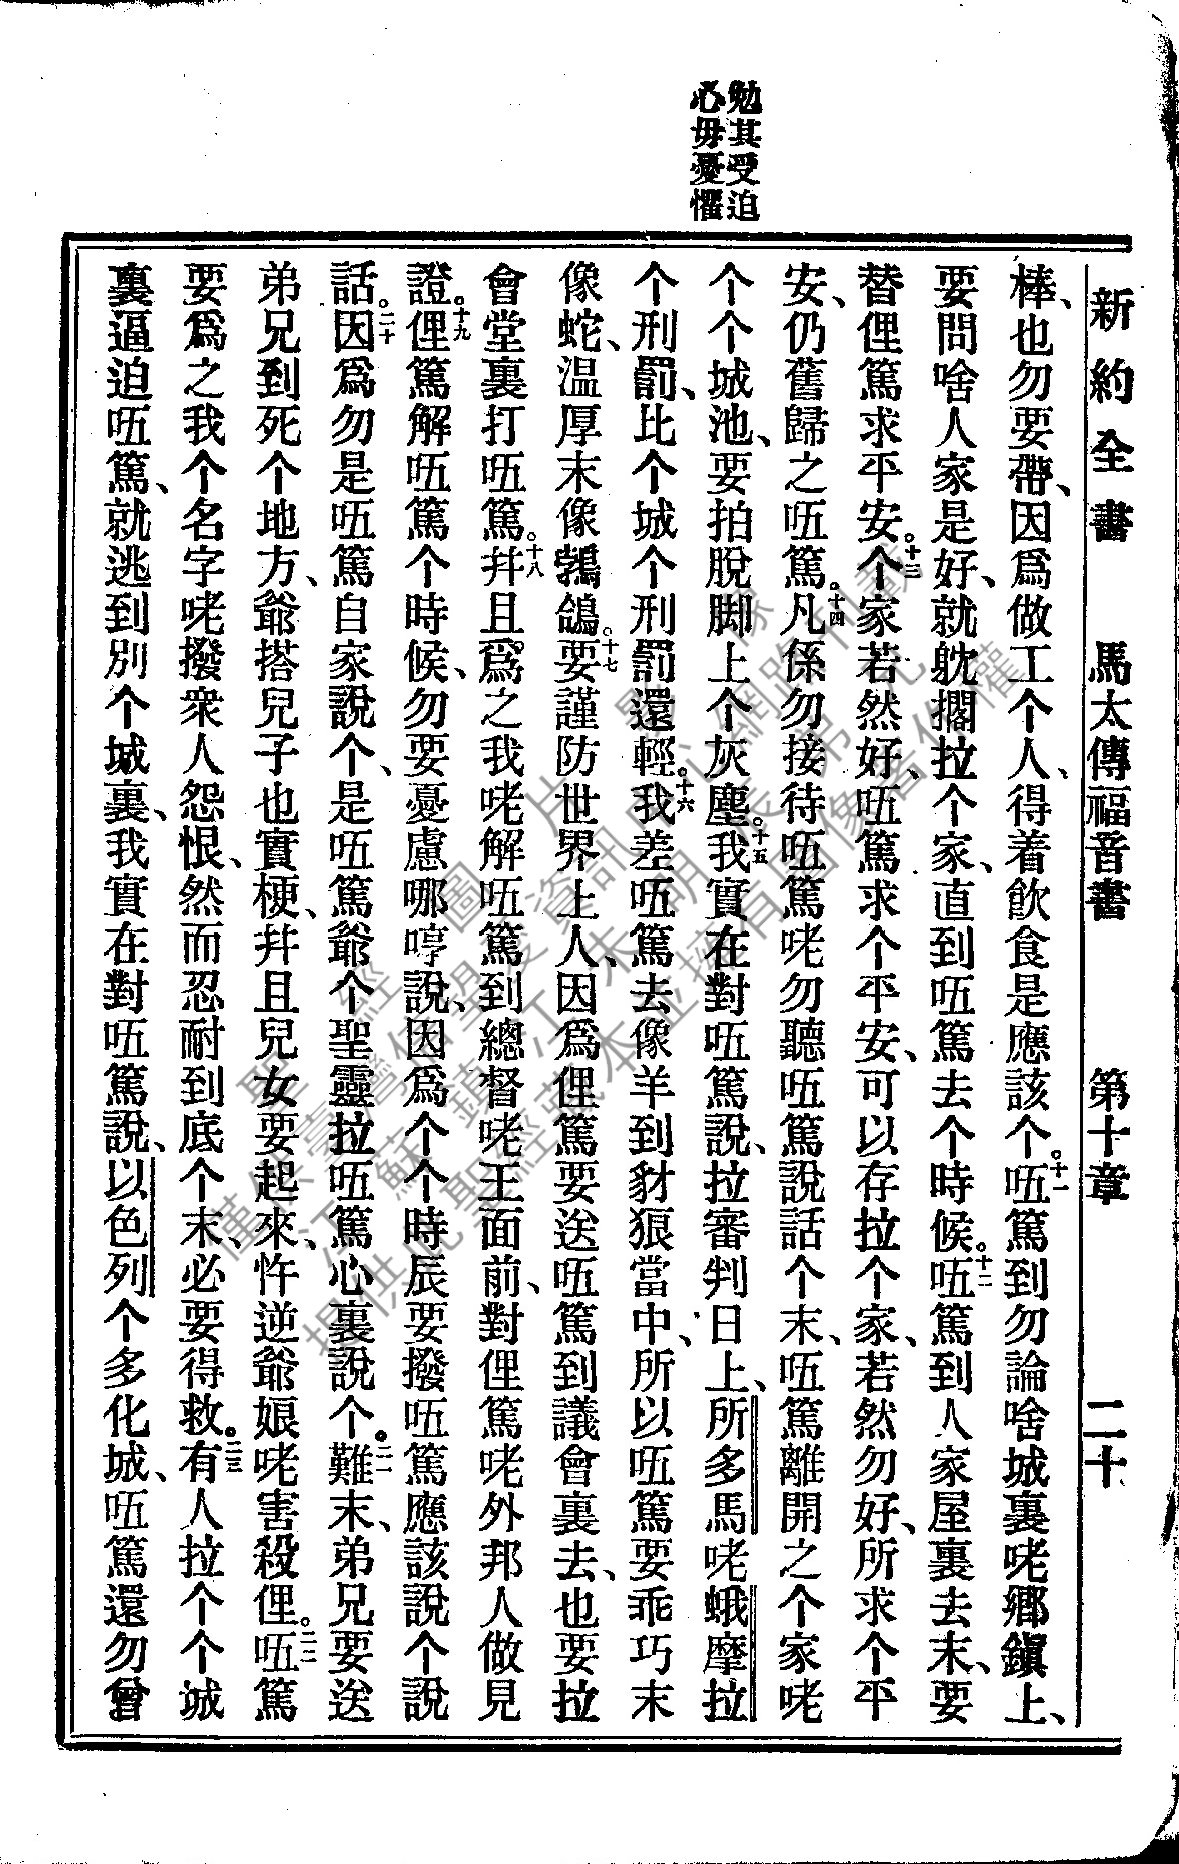 勉其受迫
心毋憂懼
新約全書 馬太傳福音書 第十章 二十
棒、也勿要帶、因爲做工个人、得着飲食是應該个。十一㕶篤到勿論啥城裏咾鄉鎭上、
要問啥人家是好、就躭擱拉个家、直到㕶篤去个時候。十二㕶篤到人家屋裏去末、要
替俚篤求平安。十三个家若然好、㕶篤求个平安、可以存拉个家、若然勿好、所求个平
安、仍舊歸之㕶篤。十四凡係勿接待㕶篤咾勿聽㕶篤說話个末、㕶篤離開之个家咾
个个城池、要拍脫脚上个灰塵。十五我實在對㕶篤說、拉審判日上、所多馬咾蛾摩拉
个刑罰、比个城个刑罰還輕。十六我差㕶篤去像羊到豺狼當中、所以㕶篤要乖巧末
像蛇、温厚末像鵓鴿。十七要謹防世界上人、因爲俚篤要送㕶篤到議會裏去、也要拉
會堂裏打㕶篤。十八幷且爲之我咾解㕶篤到總督咾王面前、對俚篤咾外邦人做見
證。十九俚篤解㕶篤个時候、勿要憂慮哪哼說、因爲个个時辰要撥㕶篤應該說个說
話。二十因爲勿是㕶篤自家說个、是㕶篤爺个聖靈拉㕶篤心裏說个。二一難末、弟兄要送
弟兄到死个地方、爺搭兒子也實梗、幷且兒女要起來、忤逆爺娘咾害殺俚。二二㕶篤
要爲之我个名字咾撥衆人怨恨、然而忍耐到底个末、必要得救。二三有人拉个个城
裏逼迫㕶篤、就逃到別个城裏、我實在對㕶篤說、以色列个多化城、㕶篤還勿曾
聖經圖片影像
僅供臺灣信望愛資訊中心網路刊載
江蘇鎮江朱朔辰弟兄
提供此聖經藏本並擁有圖像著作權